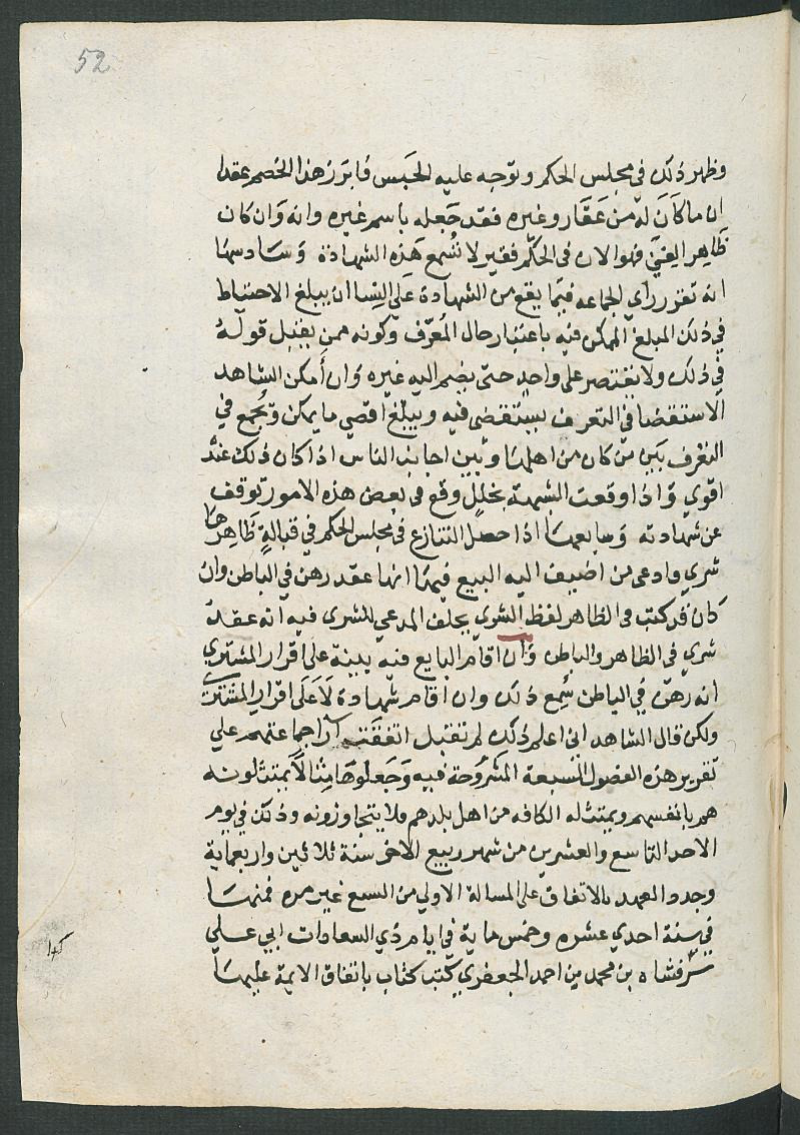 52
وظهر ذلك في مجلس الحكم وتوجه عليه الحَبس فابرز هذا الخصم عقدا
ان ما كَانَ لهُ من عَقار وغيره فقد جَعله باسم غيره وانه وَان كان
ظَاهِر الغنيّ فهو الان في الحكم فقير لا تُسْمع هَذه الشهادة وَسَادسها
انه تقرر رأي الجماعه فيمَا يقع من الشهادة عَلَى النِسا ان يبلغ الاحتياط
في ذلك المبلغ الممكن فيه باعتبار حال المُعرّف وكونه ممن يقبل قولهُ
في ذلك ولا يقتصر على واحدٍ حتى يضم اليه غيره وَان أمكن الشاهد
الاستقضا في التعرف يستقضى فيه ويبلغ اقصي ما يمكن وَيُجمع في
التعرف بَين مَن كان من اهلهَا وَبَين اجانب الناس اذا كان ذلك عندُ
اقوي وَاذا وقعت الشبهة بخللٍ وقع في بعض هذه الامور توقف
عن شهادته وَسابعهَا اذا حصل التنازع في مجلس الحكم في قبالةٍ ظَاهِرها
شري وادعى من اضيف اليه البيع فيهَا انها عقد رهن في الباطن وان
كان قد كتب في الظاهر لفظ الشري يحلف المدعي للشرى فيه انه عقد
شري في الظاهر والباطن وَان اقام البايع فيه بينة على اقرار المشتري
انه رهن في الباطن سُمِع ذلك وان اقام شهادة لاَ عَلَى اقرار المشترى
ولكن قال الشاهد انى اعلم ذلك لم تقبل اتفقَت آرا جماعتهم علي
تقرير هذه الفصول السبعة المشرُوحة فيه وَجَعلوهَا مِثالاً يمتثلونه
هم بانفسهم ويمتثله الكافه من اهل بلدهم فلا يتجاوزونه وذلك في يوم
الاحد التاسع والعشرين من شهر ربيع الاخر سنة ثلاثين واربعماية
وجددوا العهد بالاتفاق على المسالة الاولي من السبع غير مره فمنهَا
في سنة احدي عشره وخمس ماية في ايام ذي السعادات ابي علي
شرفشاه بن محمد بن احمد الجعفري كتب كتاب باتفاق الايمة عليهَا